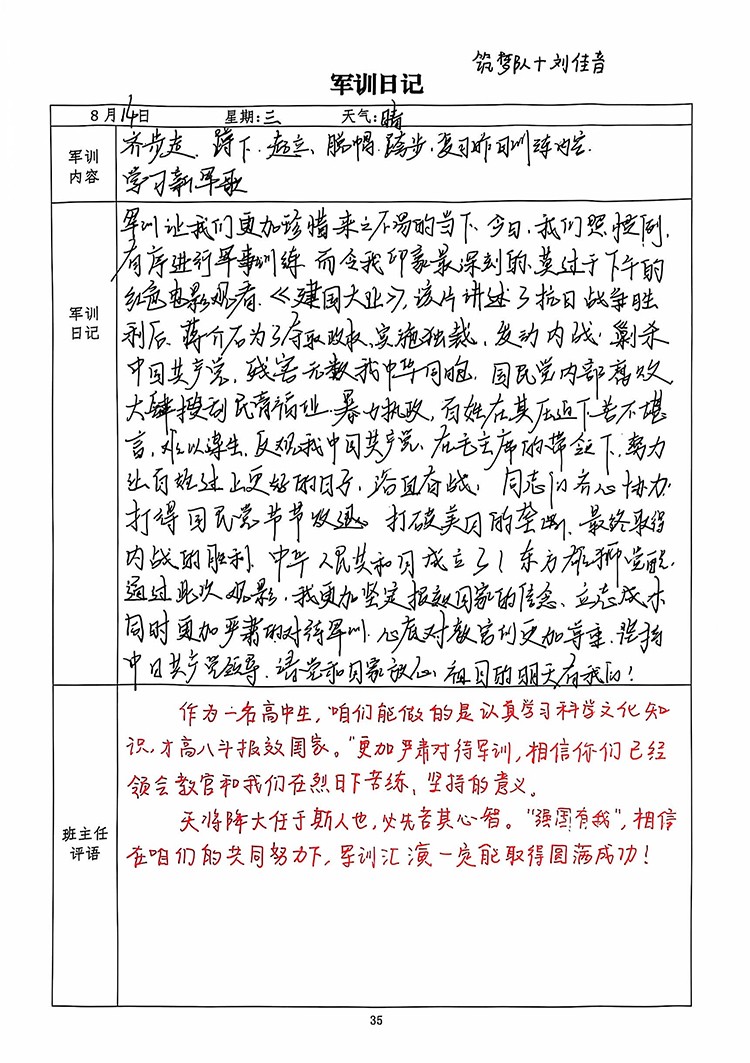 筑梦队十刘佳音
军训日记
8月14日 星期:三 天气:晴
军训内容
齐步走、蹲下、起立、脱帽、跨步、复习昨日训练内容.
学习新军歌
军训日记
军训让我们更加珍惜来之不易的当下.今日,我们照惯例,
有序进行军事训练.而令我印象最深刻的,莫过于下午的
红色电影观看.《建国大业》,该片讲述了抗日战争胜
利后.蒋介石为了夺取政权,实施独裁,发动内战.剿杀
中国共产党,残害无数我中华同胞.国民党内部腐败,
大肆搜刮民膏福业.暴力执政,百姓在其压迫下苦不堪
言,难以谋生.反观我中国共产党.在毛主席的带领下,努力
让百姓过上更好的日子,浴血奋战,同志们齐心协力.
打得国民党节节败退.打破美国的垄断,最终取得
内战的胜利.中华人民共和国成立了!东方雄狮觉醒.
通过此次观影,我更加坚定报效国家的信念、立志成才
同时更加严肃的对待军训.心底对教官们更加尊重.坚持
中国共产党领导.请党和国家放心,祖国的明天有我们!
班主任评语
作为一名高中生,咱们能做的是认真学习科学文化知
识,才高八斗报效国家。"更加严肃对待军训,相信你们已经
领会教官和我们在烈日下苦练、坚持的意义。
天将降大任于斯人也,必先苦其心智。"强国有我",相信
在咱们的共同努力下,军训汇演一定能取得圆满成功!
35